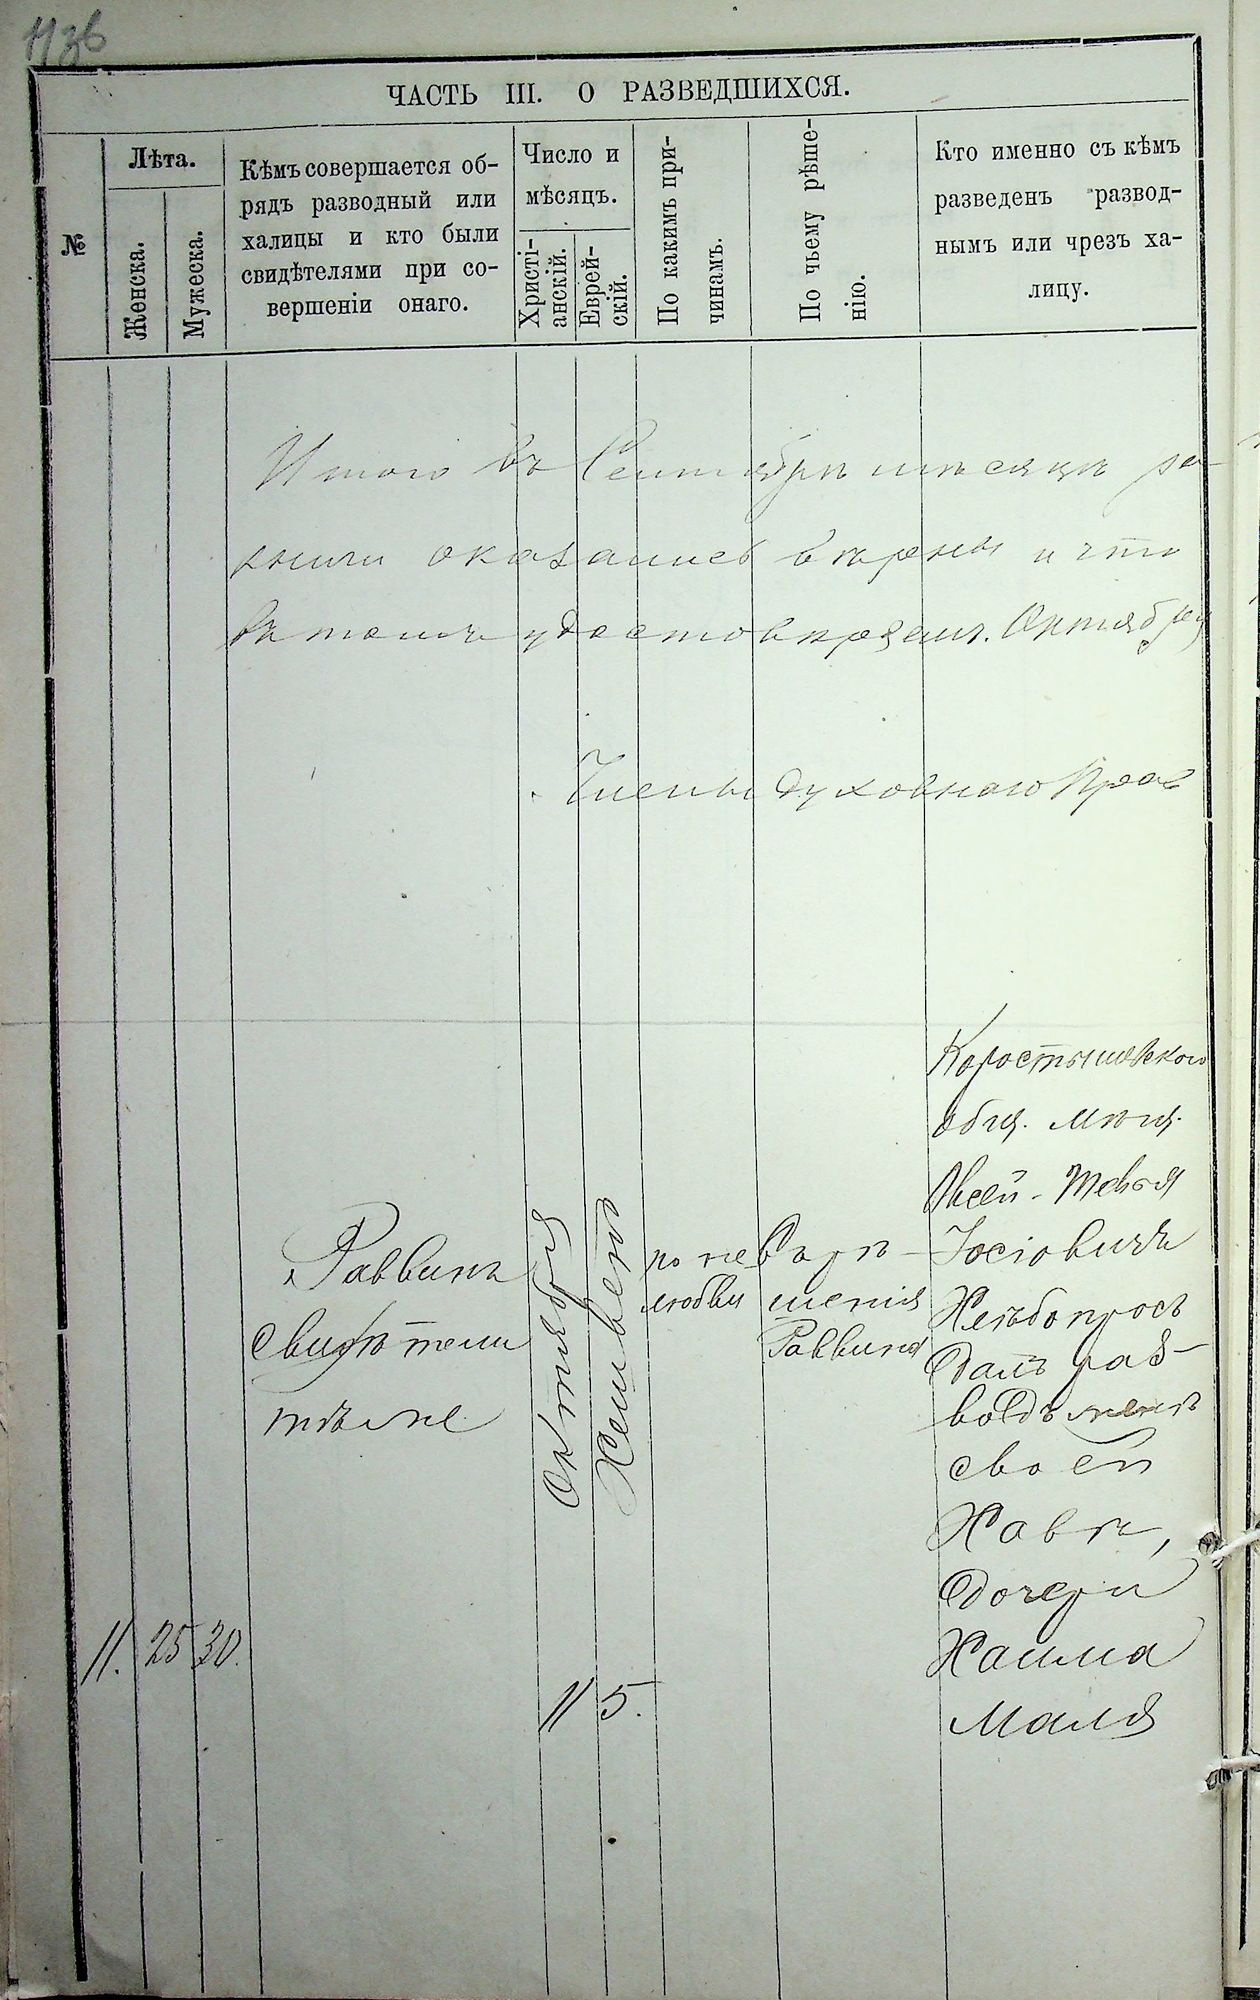 11 зв
ЧАСТЬ III. О РАЗВЕДШИХСЯ.
№
Лѣта.
Женска.
Мужеска.
Кѣмъ совершается об-
рядъ разводный или
халицы и кто были
свидѣтелями при со-
вершеніи онаго.
Число и
мѣсяцъ.
Христі-
анскій.
Еврей-
скій.
По какимъ при-
чинамъ.
По чьему рѣше-
нію.
Кто именно съ кѣмъ
разведенъ развод-
нымъ или чрезъ ха-
лицу.
Итого въ Сентябрѣ мѣсяцѣ ра-
книги оказались вѣрны и что
въ томъ удостовѣряемъ. Октября
Члены духовнаго Прав
11.
25
30.
Раввинъ
свидѣтели
тѣ же
Октября
11
Хешвенъ
5.
по не
любви
Съ рѣ-
шенія
Раввина
Коростышевского
общ. мѣщ.
Овсей-Тевья
Іосіовичъ
Хлѣбопросъ
далъ раз-
водъ женѣ
своей
Хавѣ,
дочери
Хаима
Маля